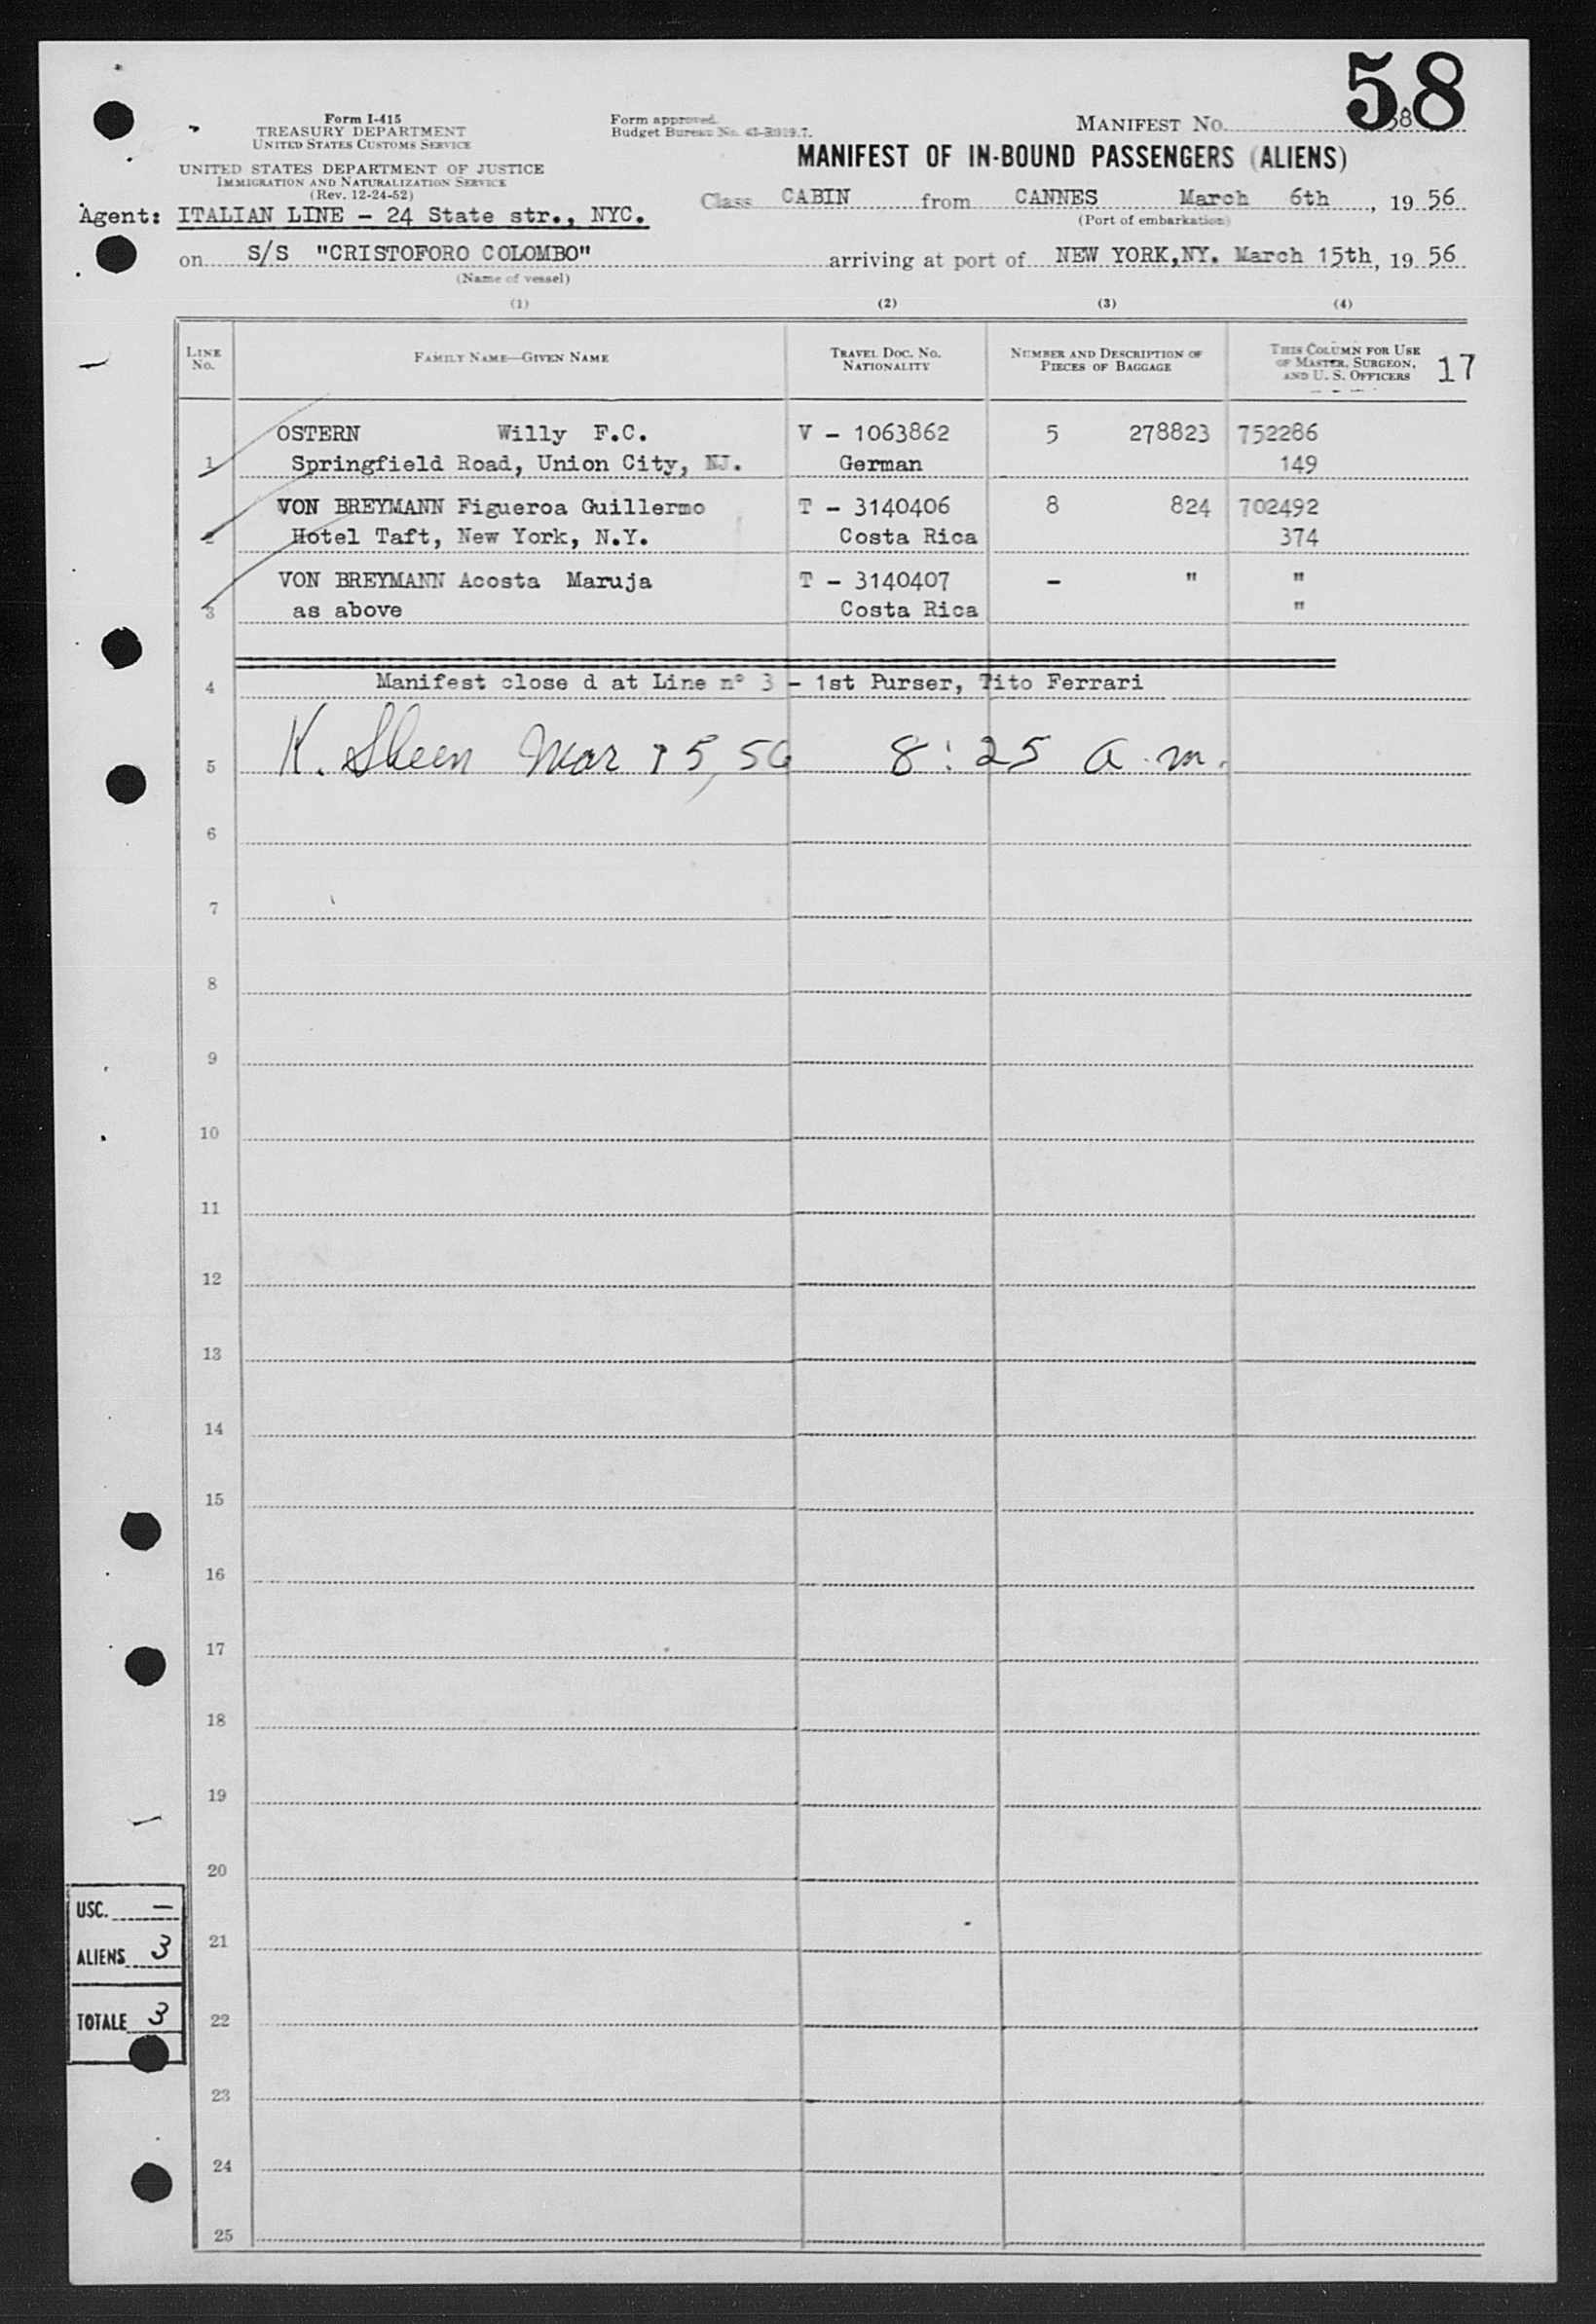 58
Form I-415
TREASURY DEPARTMENT
UNITED STATES CUSTOMS SERVICE
UNITED STATES DEPARTMENT OF JUSTICE
IMMIGRATION AND NATURALIZATION SERVICE
(Rev. 12-24-52)
Form approved.
Budget Bureau No.
MANIFEST No.
MANIFEST OF IN-BOUND PASSENGERS (ALIENS)
Agent: ITALIAN LINE - 24 State str., NYC.
Class CABIN from CANNES March 6th, 19 56
(Port of embarkation)
on S/S "CRISTOFORO COLOMBO" arriving at port of NEW YORK,NY. March 15th, 19 56
(Name of vessel)
(1) (2) (3) (4)
LINE No. FAMILY NAME—GIVEN NAME TRAVEL DOC. NO. NATIONALITY NUMBER AND DESCRIPTION OF PIECES OF BAGGAGE THIS COLUMN FOR USE OF MASTER, SURGEON, AND U. S. OFFICERS 17
OSTERN Willy F.C. V - 1063862 5 278823 752286
1 Springfield Road, Union City, NJ. German 149
VON BREYMANN Figueroa Guillermo T - 3140406 8 824 702492
2 Hotel Taft, New York, N.Y. Costa Rica 374
VON BREYMANN Acosta Maruja T - 3140407 - " "
3 as above Costa Rica "
4 Manifest close d at Line n° 3 - 1st Purser, Tito Ferrari
5 K. Sheen Mar 15, 56 8:25 a.m.
6
7
8
9
10
11
12
13
14
15
16
17
18
19
20
USC. —
21
ALIENS 3
22
TOTALE 3
23
24
25